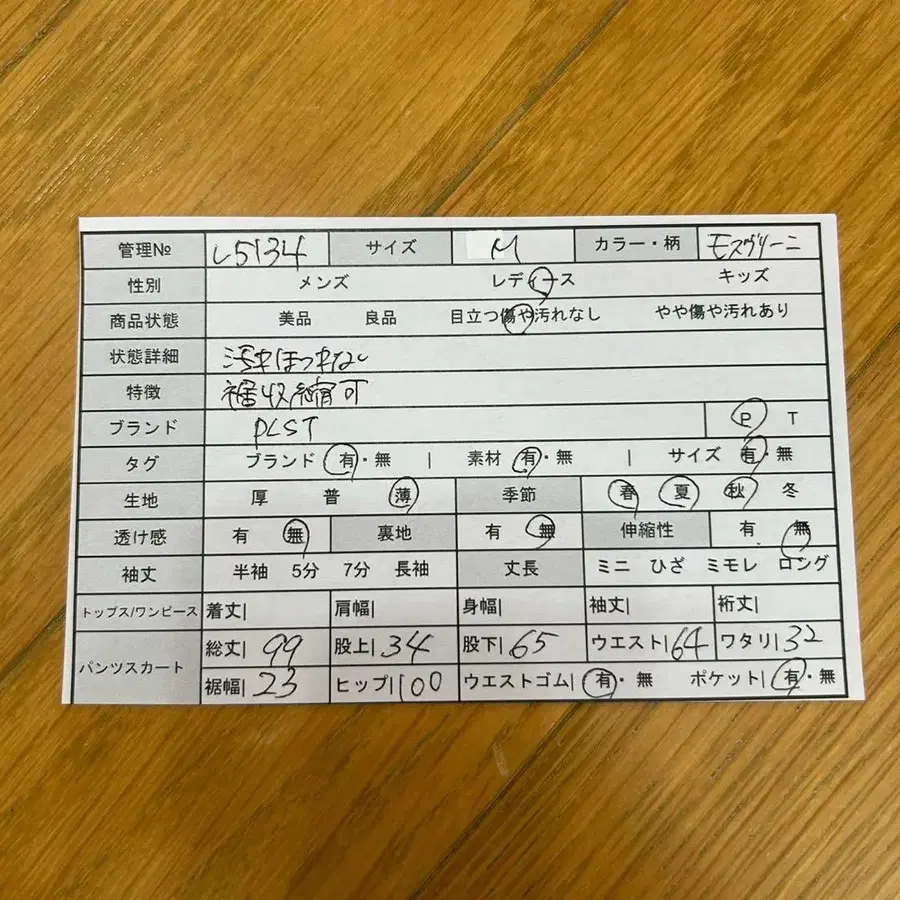 管理№ L5134 サイズ M カラー・柄 モスグリーン
性別 メンズ レディース キッズ
商品状態 美品 良品 目立つ傷や汚れなし やや傷や汚れあり
状態詳細 汚れほつれなし
特徴 裾収縮可
ブランド PLST P T
タグ ブランド 有・無 | 素材 有・無 | サイズ 有・無
生地 厚 普 薄 季節 春 夏 秋 冬
透け感 有 無 裏地 有 無 伸縮性 有 無
袖丈 半袖 5分 7分 長袖 丈長 ミニ ひざ ミモレ ロング
トップス/ワンピース 着丈| 肩幅| 身幅| 袖丈| 裄丈|
パンツスカート 総丈| 99 股上| 34 股下| 65 ウエスト| 64 ワタリ| 32
裾幅| 23 ヒップ| 100 ウエストゴム| 有・無 ポケット| 有・無